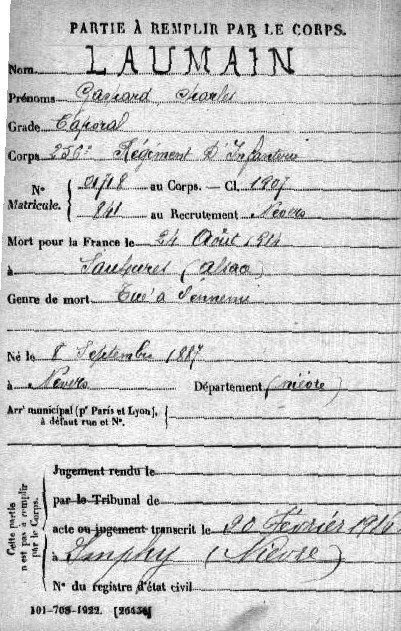 PARTIE À REMPLIR PAR LE CORPS.
Nom LAUMAIN
Prénoms Gaspard Charles
Grade Caporal
Corps 256e Régiment d'Infanterie
N° Matricule. { 01718 au Corps. — Cl. 1907
841 au Recrutement Nevers
Mort pour la France le 24 Août 1914
à Saulxures (Alsace)
Genre de mort Tué à l'ennemi
Né le 8 Septembre 1887
à Nevers Département (Nièvre)
Arrt municipal (pr Paris et Lyon), à défaut rue et N°. {
Cette partie n'est pas à remplir par le Corps. {
Jugement rendu le
par le Tribunal de
acte ou jugement transcrit le 20 Février 1916
à Imphy (Nièvre)
N° du registre d'état civil
101-708-1922. [26434]